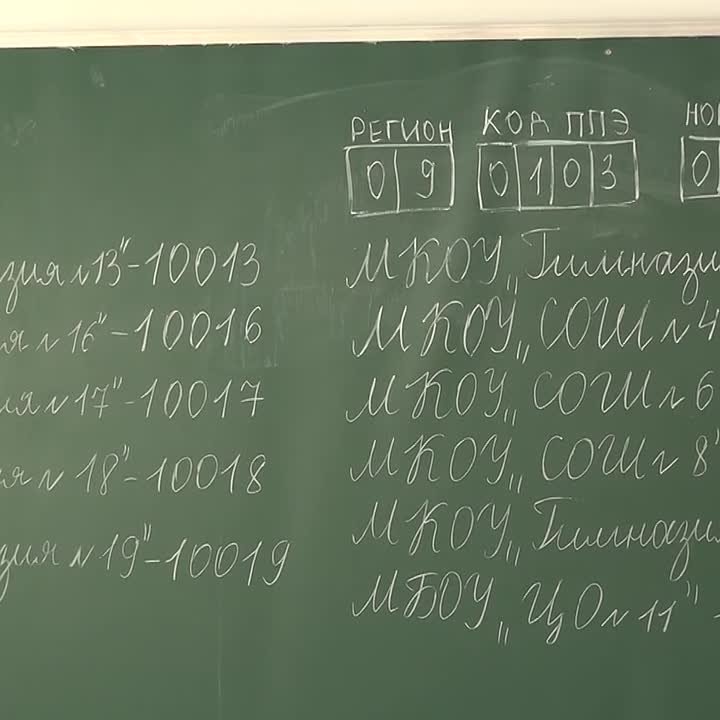 РЕГИОН КОД ППЭ НО
09 0103 0
зия №13" - 10013
я №16" - 10016
ия №17" - 10017
ия №18" - 10018
зия №19" - 10019
МКОУ "Гимнази
МКОУ "СОШ №4
МКОУ "СОШ №6
МКОУ "СОШ №8"
МКОУ "Гимнази
МБОУ "ЦО №11" -